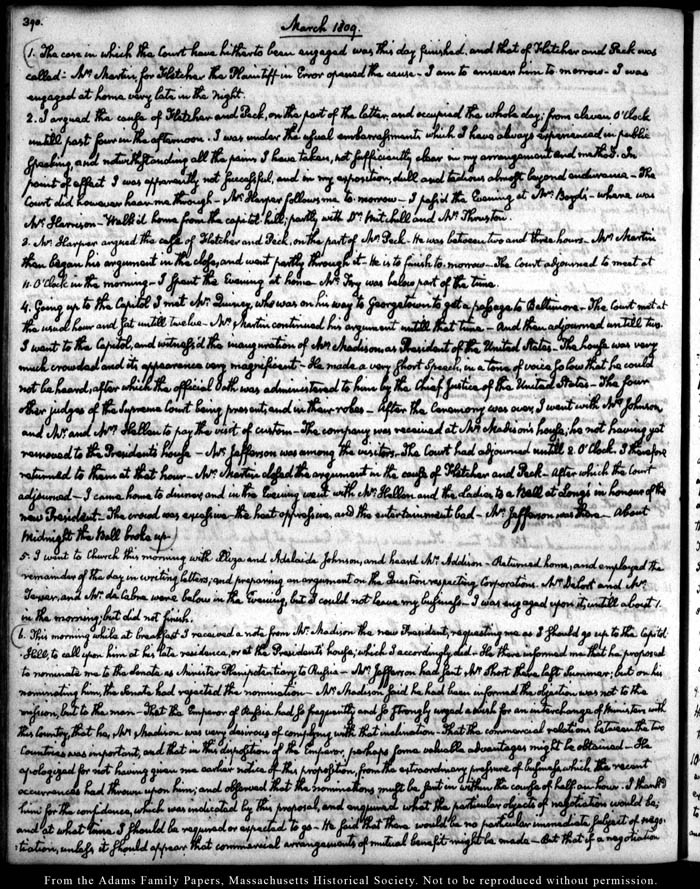 390.
March 1809.
1. The case in which the Court have hitherto been engaged was this day finished, and that of Fletcher and Peck was
called: Mr. Martin, for Fletcher the Plaintiff in Error opened the cause - I am to answer him to-morrow - I was
engaged at home very late in the Night.
2. I argued the cause of Fletcher and Peck, on the part of the latter, and occupied the whole day; from eleven O'Clock
untill past four in the afternoon. I was under the usual embarrassment, which I have always experienced in public
speaking, and notwithstanding all the pains I have taken, not sufficiently clear in my arrangement and method. In
point of effect I was apparently not successful, and in my exposition, dull and tedious almost beyond endurance - The
Court did however hear me through - Mr. Harper follows me to-morrow - I pass'd the Evening at Mr. Boyd's - where was
Mr. Harrison - Walk'd home from the capitol-hill; partly with Dr. Mitchell and Mr. Thruston.
3. Mr. Harper argued the case of Fletcher and Peck, on the part of Mr. Peck - He was between two and three hours - Mr. Martin
then began his argument in the close, and went partly through it - He is to finish to-morrow - The Court adjourned to meet at
11. O'Clock in the morning - I spent the Evening at home - Mr. Foy was below part of the time.
4. Going up to the Capitol I met Mr. Quincy, who was on his way to Georgetown to get a passage to Baltimore - The Court met at
the usual hour and sat untill twelve - Mr. Martin continued his argument untill that time - And then adjourned untill two
I went to the Capitol, and witness'd the inauguration of Mr. Madison, as President of the United States - The house was very
much crowded and its appearance very magnificent - He made a very short speech, in a tone of voice so low that he could
not be heard, after which the official Oath was administered to him by the Chief Justice of the United States - The four
other judges of the Supreme Court being present, and in their robes - After the Ceremony was over, I went with Mr. Johnson,
and Mr. and Mrs. Hellen to pay the visit of custom - The company was received at Mr. Madison's house; he not having yet
removed to the President's house - Mr. Jefferson was among the visitors. The Court had adjourned untill 2 O'Clock. I therefore
returned to them at that hour - Mr. Martin closed the argument in the cause of Fletcher and Peck - After which the Court
adjourned - I came home to dinner, and in the Evening went with Mr. Hellen and the ladies to a Ball at Long's in honour of the
new President - The crowd was excessive - the heat oppressive, and the entertainment bad - Mr. Jefferson was there - About
Midnight the Ball broke up.
5. I went to Church this morning with Eliza and Adelaide Johnson, and heard Mr. Addison - Returned home, and employed the
remainder of the day in writing letters, and preparing an argument on the Question respecting Corporations. Mr. and Mr.
and Mr. da Cabra were below in the Evening, but I could not leave my business - I was engaged upon it, untill about 1.
in the morning; but did not finish.
6. This morning while at breakfast I received a note from Mr. Madison the new President, requesting me as I should go up to the Capitol
Hill, to call upon him at his late residence, or at the President's house, which I accordingly did - He there informed me that he proposed
to nominate me to the Senate as Minister Plenipotentiary to Russia - Mr. Jefferson had sent Mr. Short there last Summer; but on his
nominating him, the Senate had rejected the nomination - Mr. Madison said he had been informed the objection was not to the
mission, but to the man - That the Emperor of Russia had so frequently and so strongly urged a wish for an interchange of Ministers with
this Country, that he, Mr. Madison was very desirous of complying with that inclination - That the commercial relations between the two
Countries was important, and that in the disposition of the Emperor, perhaps some valuable advantages might be obtained - He
apologized for not having given me earlier notice of this proposition, from the extraordinary pressure of business, which the recent
occurrences had thrown upon him; and observed that the nominations must be sent in within the course of half an hour. I thank'd
him for the confidence, which was indicated by this proposal, and enquired what the particular objects of negotiation would be;
and at what time I should be required or expected to go - He said that there would be no particular immediate subject of nego-
tiation, unless it should appear that commercial arrangements of mutual benefit might be made - But that if a negotiation
From the Adams Family Papers, Massachusetts Historical Society. Not to be reproduced without permission.